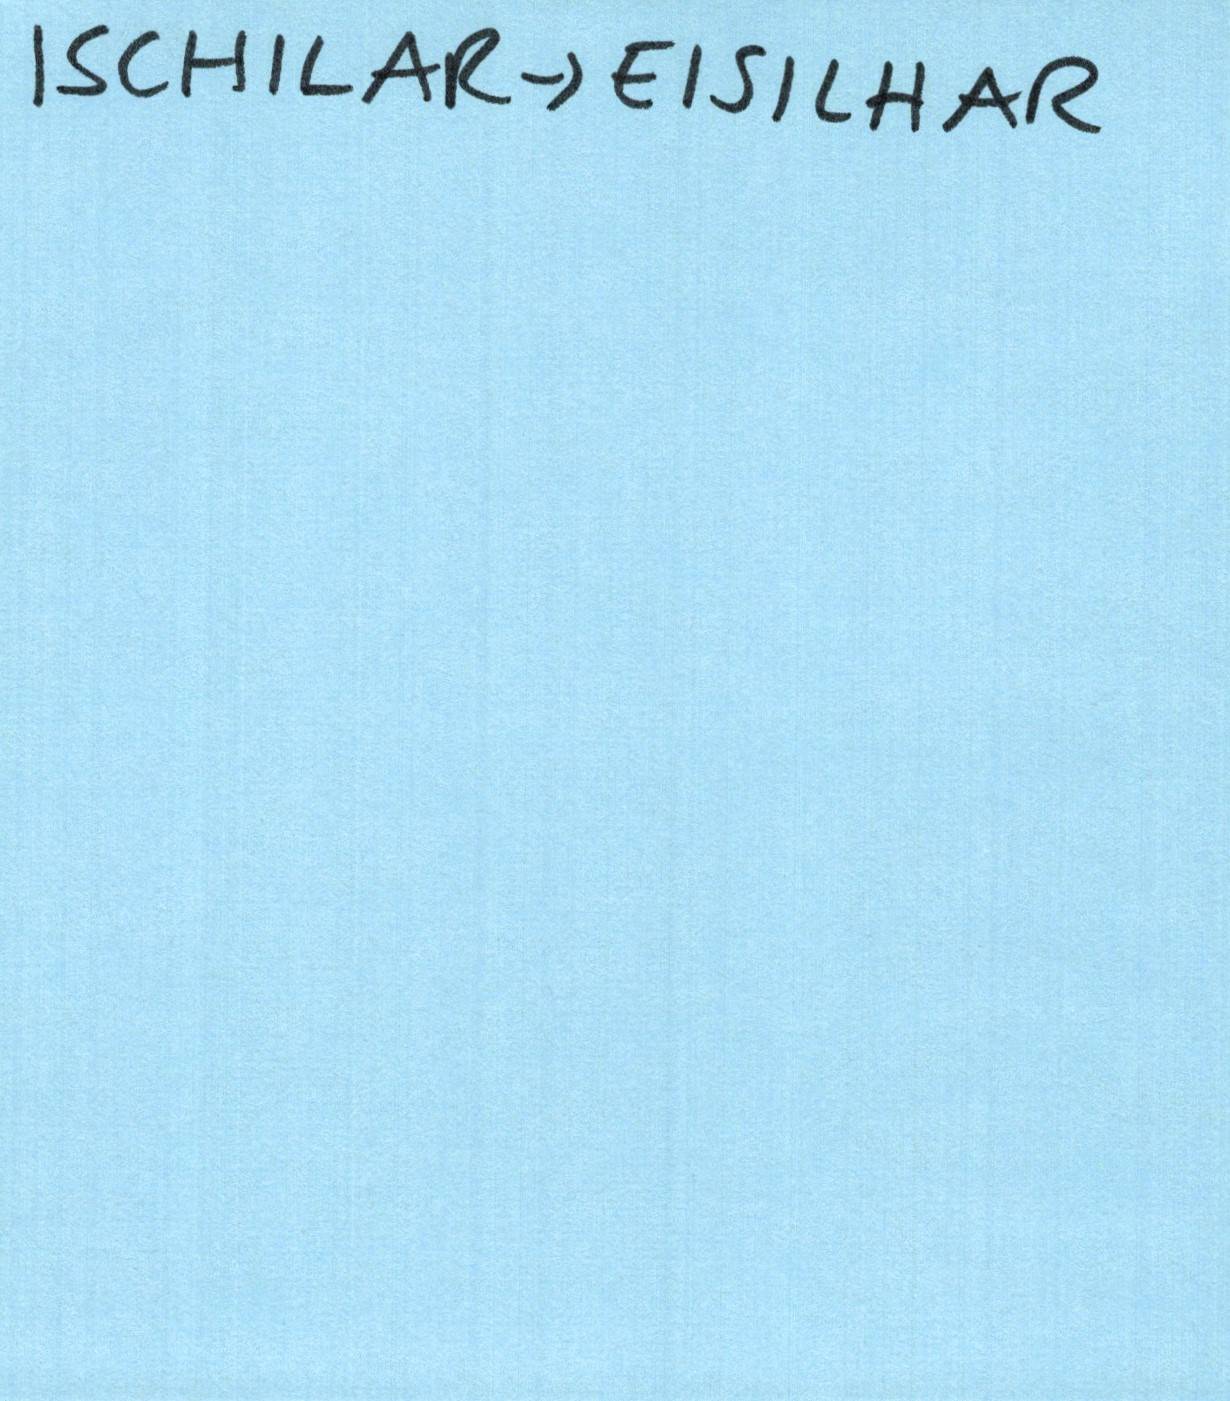 ISCHILAR → EISILHAR